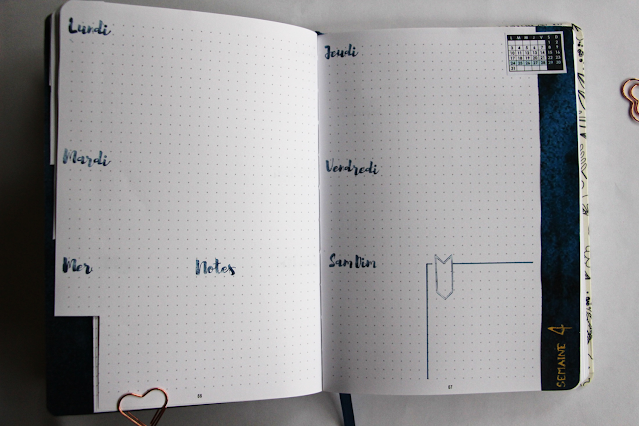 Lundi
Mardi
Mer
Notes
Jeudi
Vendredi
Sam Dim
67
SEMAINE 4